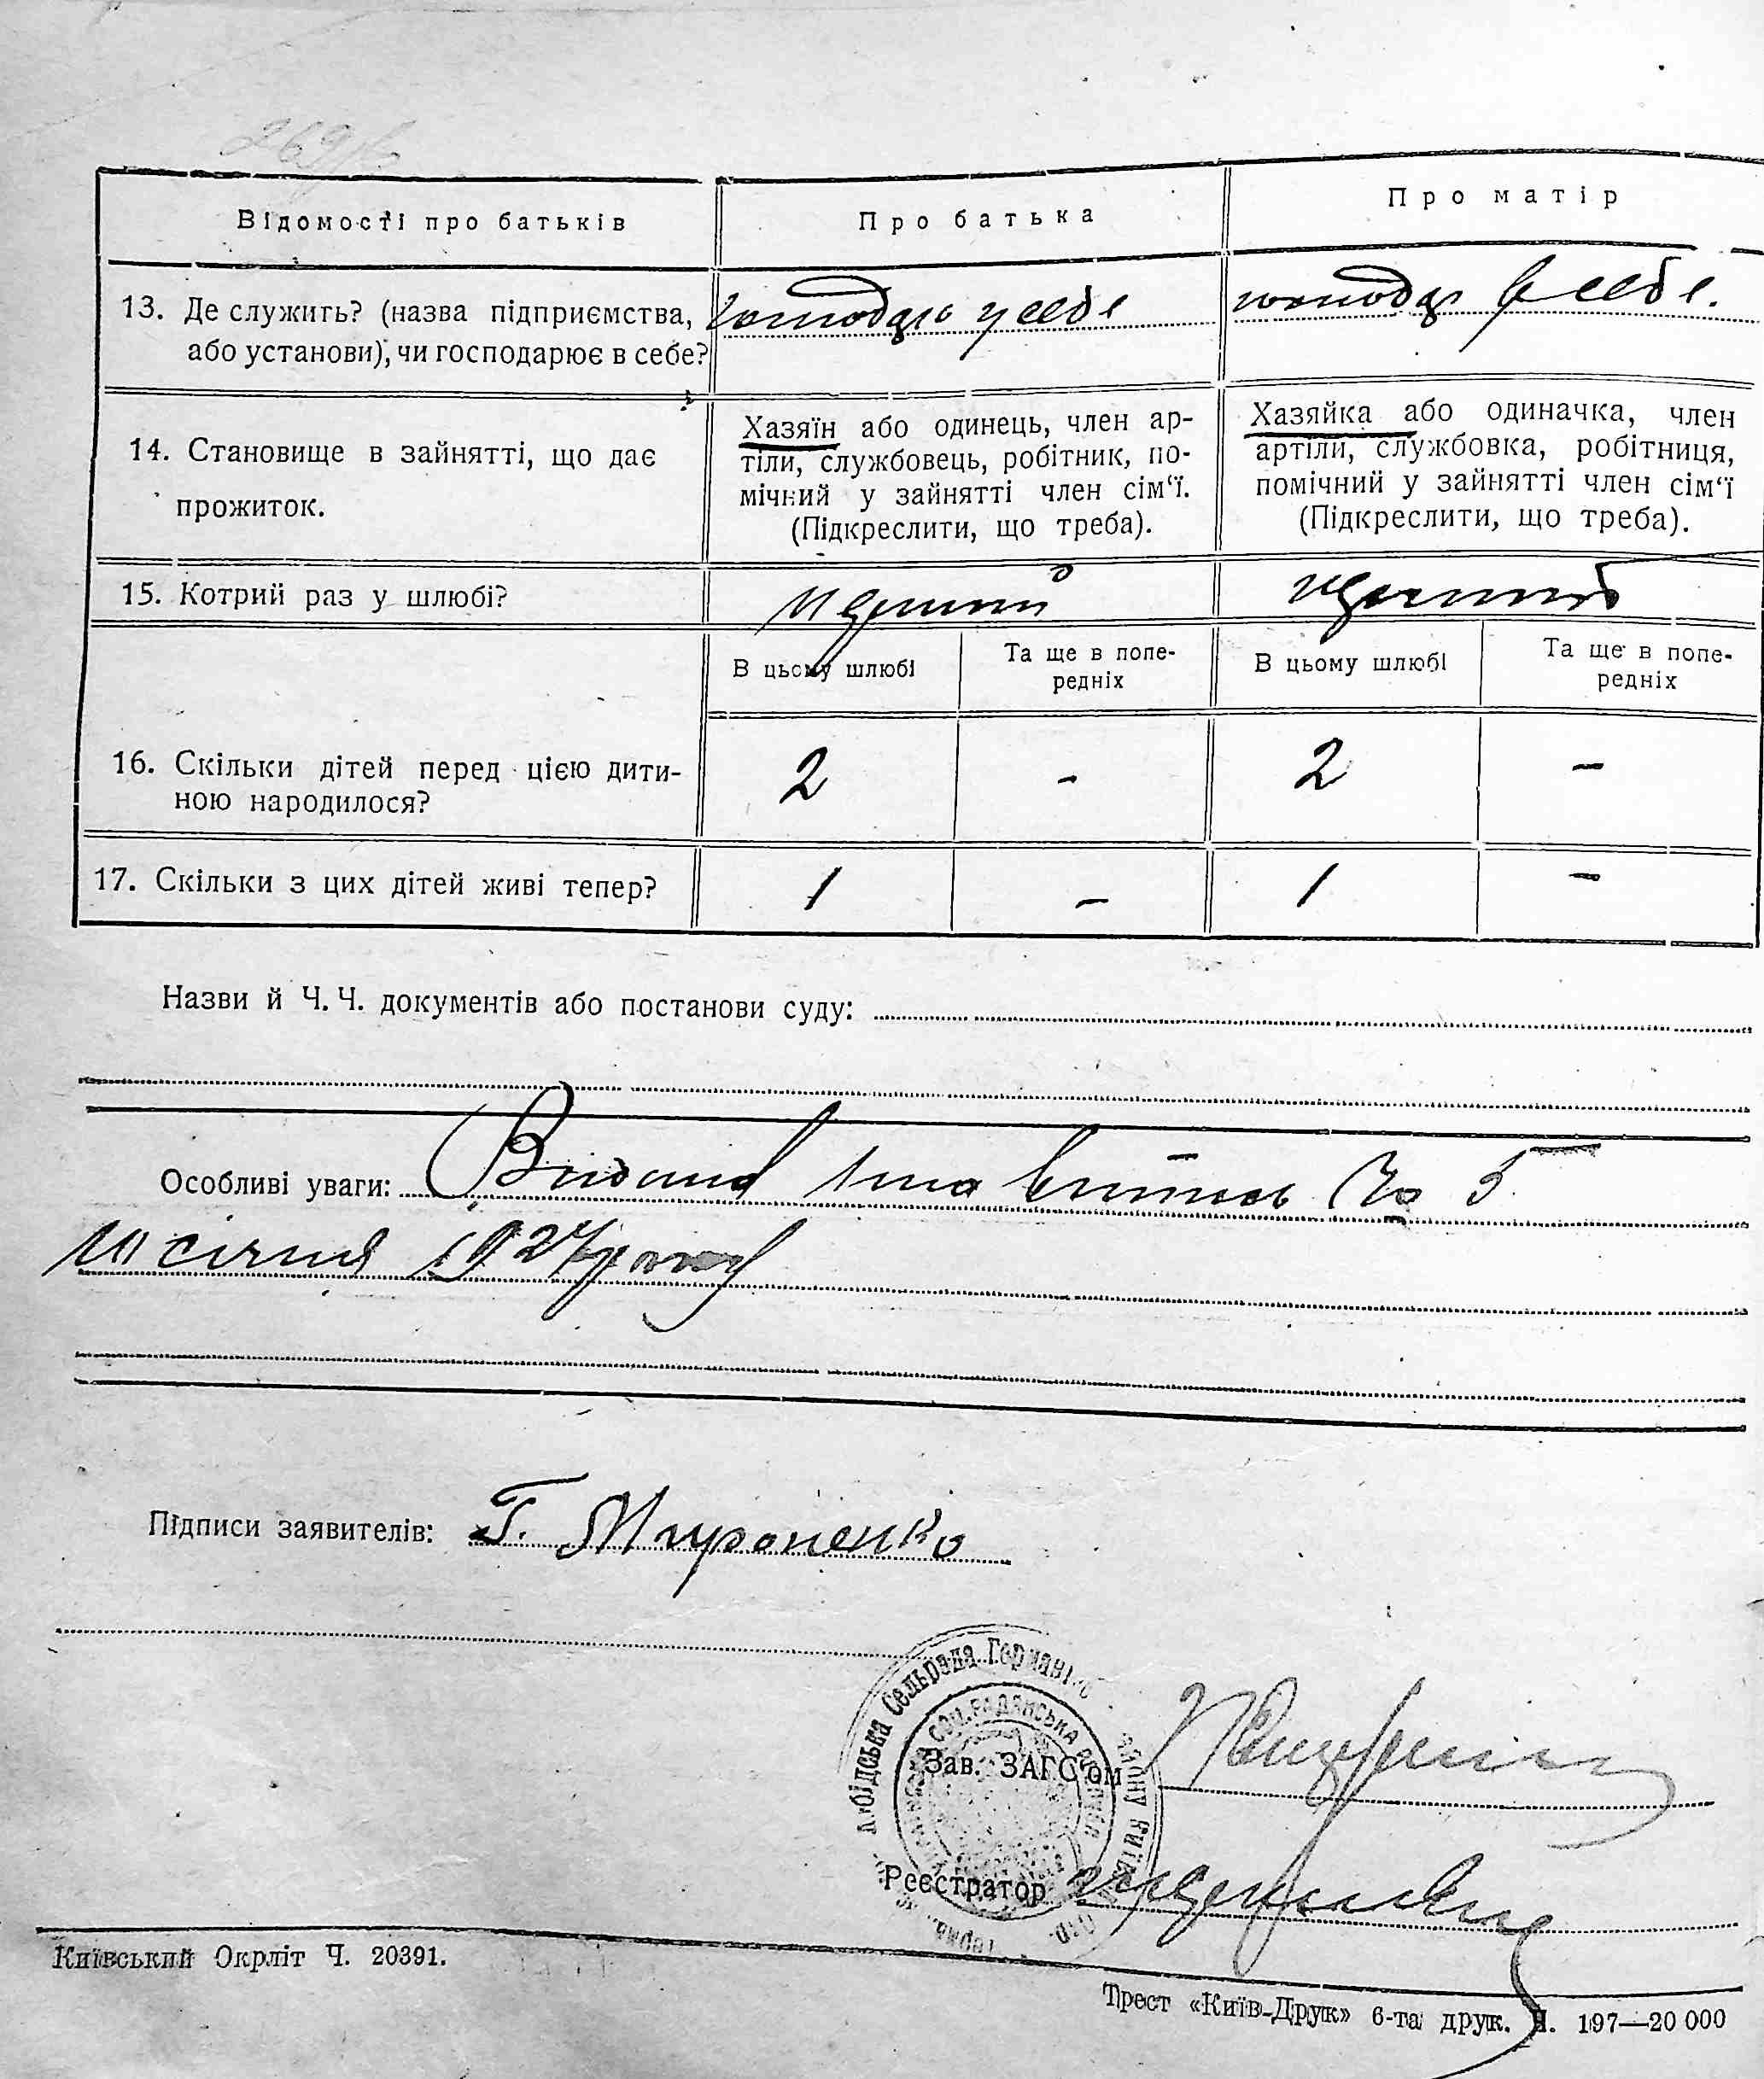 Відомості про батьків
Про батька
Про матір
13. Де служить? (назва підприємства, або установи), чи господарює в себе?
у себе
в себе.
14. Становище в зайнятті, що дає прожиток.
Хазяїн або одинець, член ар-
тіли, службовець, робітник, по-
мічний у зайнятті член сім‘ї.
(Підкреслити, що треба).
Хазяйка або одиначка, член
артіли, службовка, робітниця,
помічний у зайнятті член сім‘ї
(Підкреслити, що треба).
15. Котрий раз у шлюбі?
перший
перший
В цьому шлюбі
Та ще в попе-
редніх
В цьому шлюбі
Та ще в попе-
редніх
16. Скільки дітей перед цією дити-
ною народилося?
2 - 2 -
17. Скільки з цих дітей живі тепер?
1 - 1 -
Назви й Ч. Ч. документів або постанови суду:
Особливі уваги: № 5
січня 1927 року
Підписи заявителів: Г. Мироненко
Сельрада
Зав. ЗАГС‘ом
Реєстратор
Київський Окрліт Ч. 20391.
Трест «Київ-Друк» 6-та друк. 197—20 000